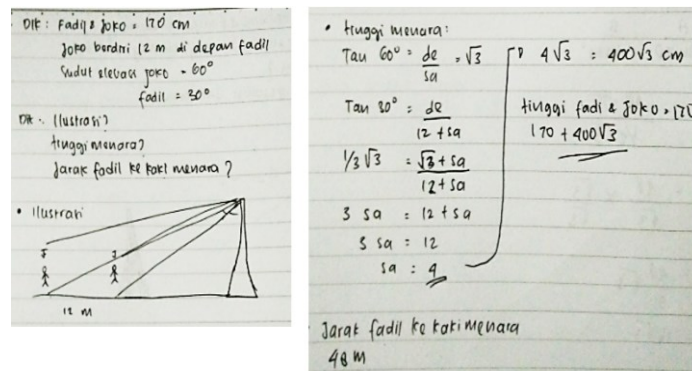 Dik : Fadil & Joko = 170 cm
Joko berdiri 12 m di depan fadil
Sudut elevasi joko = 60°
fadil = 30°
Dit :. Ilustrasi?
tinggi menara?
Jarak fadil ke kaki menara ?
• Ilustrasi
F J
12 m
• tinggi menara :
Tan 60° = de/sa = √3
Tan 30° = de/12 + sa
1/3 √3 = √3 + sa/12 + sa
3 sa = 12 + sa
3 sa = 12
sa = 4
4√3 = 400√3 cm
tinggi fadi & Joko = 170
170 + 400√3
Jarak fadil ke kaki menara
48 m